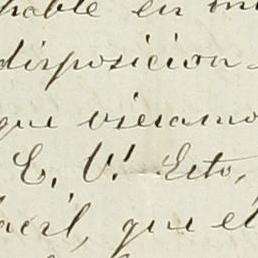 hable en mi
disposicion
que vieramo
E. V.! Esto,
acil, que el